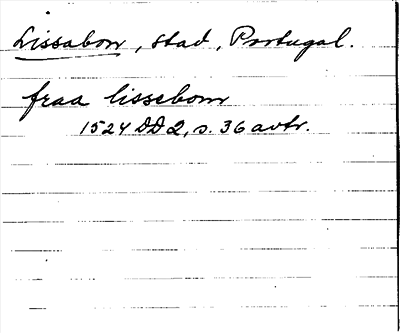 Lissabon, stad, Portugal.
fraa lissebom
1524 DD2, s. 36 avtr.